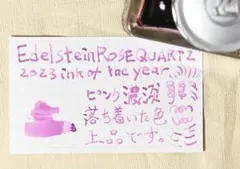 Edelstein ROSE QUARTZ
2023 ink of the year
ピンク濃淡
落ち着いた色
上品です。